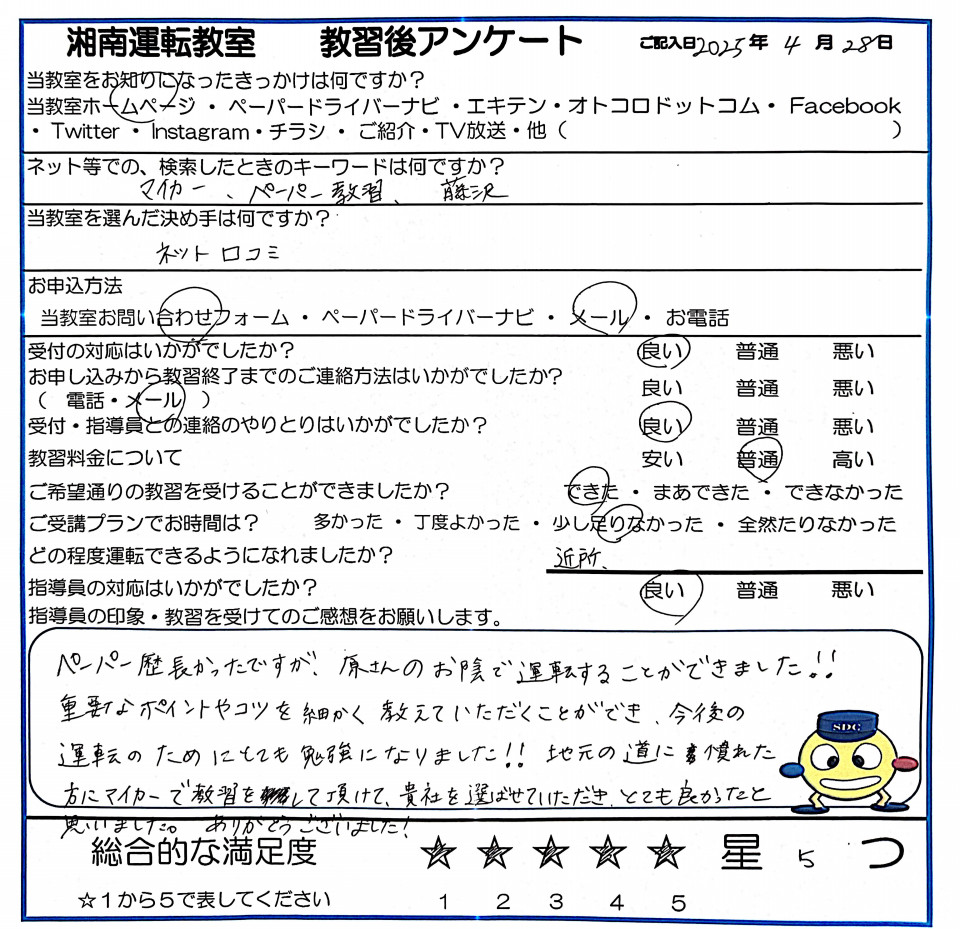 湘南運転教室 教習後アンケート ご記入日2025年 4月 28日
当教室をお知りになったきっかけは何ですか？
当教室ホームページ ・ ペーパードライバーナビ ・エキテン・オトコロドットコム・ Facebook
・ Twitter ・ Instagram・チラシ ・ ご紹介・TV放送・他（ ）
ネット等での、検索したときのキーワードは何ですか？
マイカー 、ペーパー教習、 藤沢
当教室を選んだ決め手は何ですか？
ネット 口コミ
お申込方法
当教室お問い合わせフォーム ・ ペーパードライバーナビ ・ メール ・ お電話
受付の対応はいかがでしたか？ 良い 普通 悪い
お申し込みから教習終了までのご連絡方法はいかがでしたか？ 良い 普通 悪い
（ 電話・メール ）
受付・指導員との連絡のやりとりはいかがでしたか？ 良い 普通 悪い
教習料金について 安い 普通 高い
ご希望通りの教習を受けることができましたか？ できた ・ まあできた ・ できなかった
ご受講プランでお時間は？ 多かった ・ 丁度よかった ・ 少し足りなかった ・ 全然たりなかった
どの程度運転できるようになれましたか？ 近所、
指導員の対応はいかがでしたか？ 良い 普通 悪い
指導員の印象・教習を受けてのご感想をお願いします。
ペーパー歴長かったですが、原さんのお陰で運転することができました!!
重要なポイントやコツを細かく教えていただくことができ、今後の
運転のためにとても勉強になりました!! 地元の道に慣れた
方にマイカーで教習をして頂けて、貴社を選ばせていただき、とても良かったと
思いました。ありがとうございました!
SDC
総合的な満足度 ☆ ☆ ☆ ☆ ☆ 星 5 つ
☆１から５で表してください 1 2 3 4 5